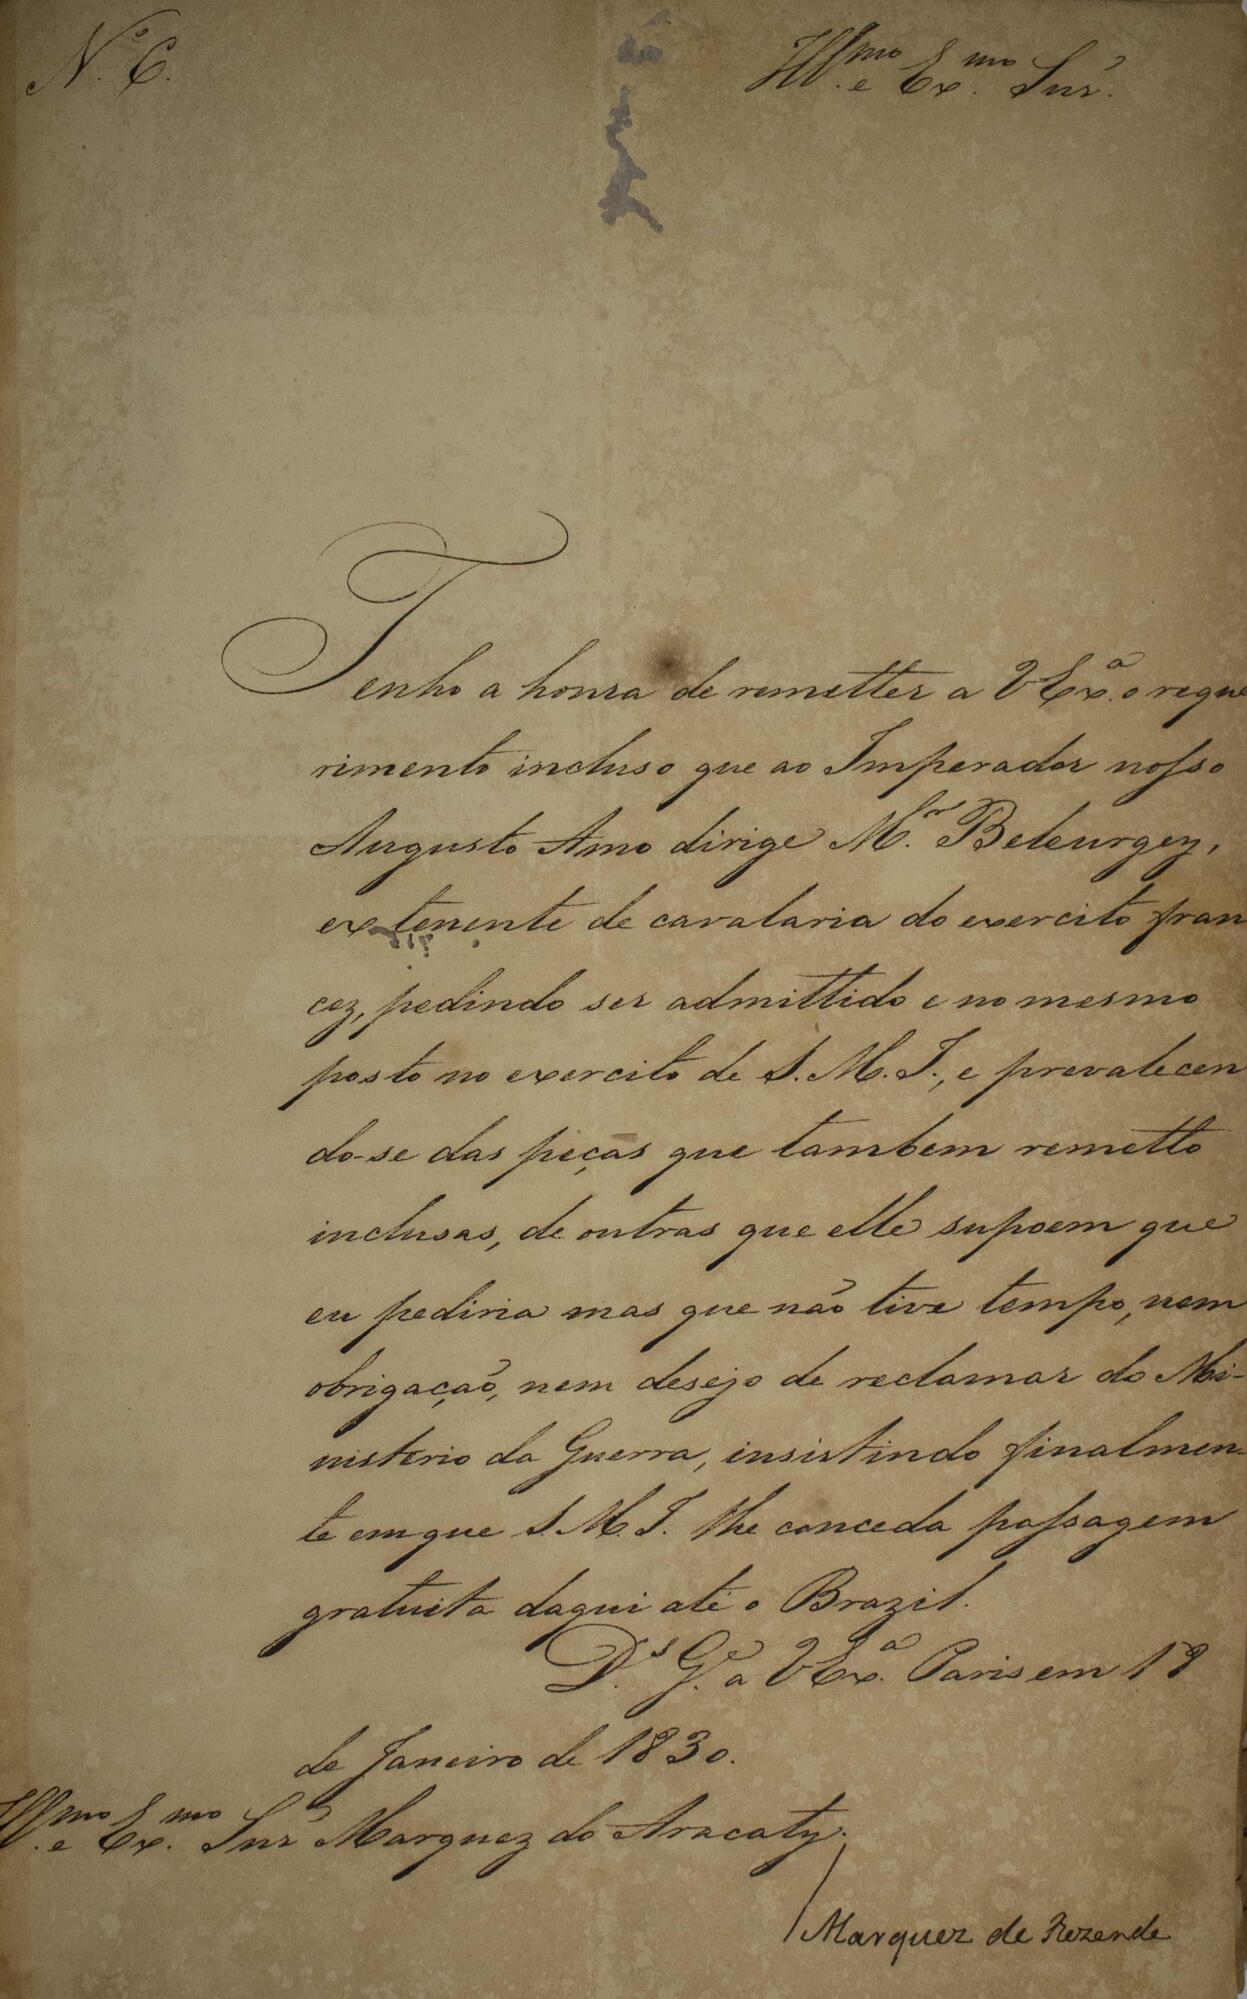 N.º 6.
Ill.mo e Ex.mo Snr.
Tenho a honra de remetter a V Ex.a o reque
rimento incluso que ao Imperador nosso
Augusto Amo dirige M.r Beleurgey,
ex tenente de cavalaria do exercito fran
cez, pedindo ser admittido e no mesmo
posto no exercito de S. M. I., e prevalecen
do-se das peças que tambem remetto
inclusas, de outras que elle supoem que
eu pediria mas que não tive tempo, nem
obrigação, nem desejo de reclamar do Mi-
nisterio da Guerra, insistindo finalmen-
te em que S. M. I. lhe conceda passagem
gratuita daqui até o Brazil.
D.s G.e a V Ex.a Paris em 18
de Janeiro de 1830.
Ill.mo e Ex.mo Snr Marquez do Aracaty.
Marquez de Rezende